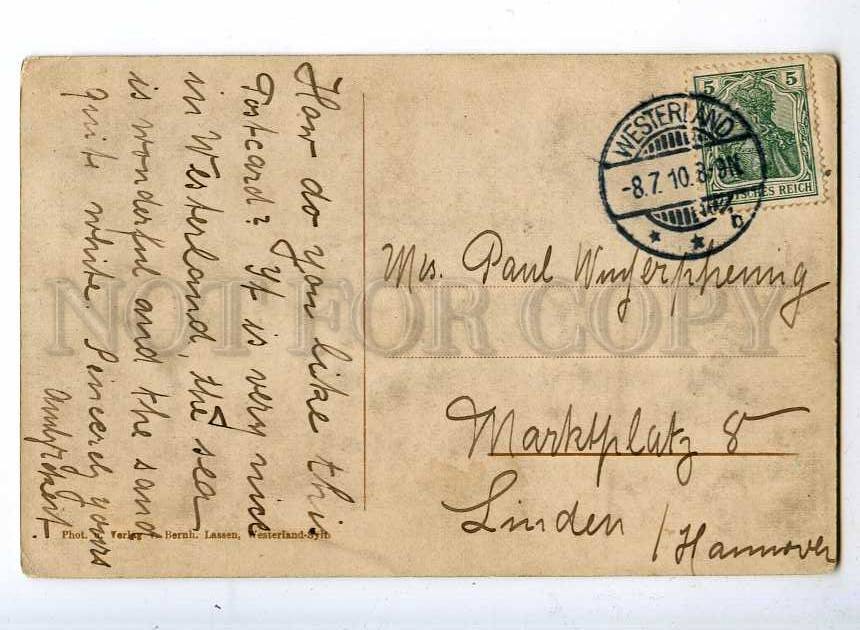 How do you like this
Postcard? It is very nice
in Westerland, the sea
is wonderful and the sand
quite white. Sincerely yours
5 5
DEUTSCHES REICH
WESTERLAND
-8.7.10.8-9N.
b
Mrs. Paul
Marktplatz 8
Linden / Hannover
Phot. u. Verlag v. Bernh. Lassen, Westerland-Sylt
NOT FOR COPY